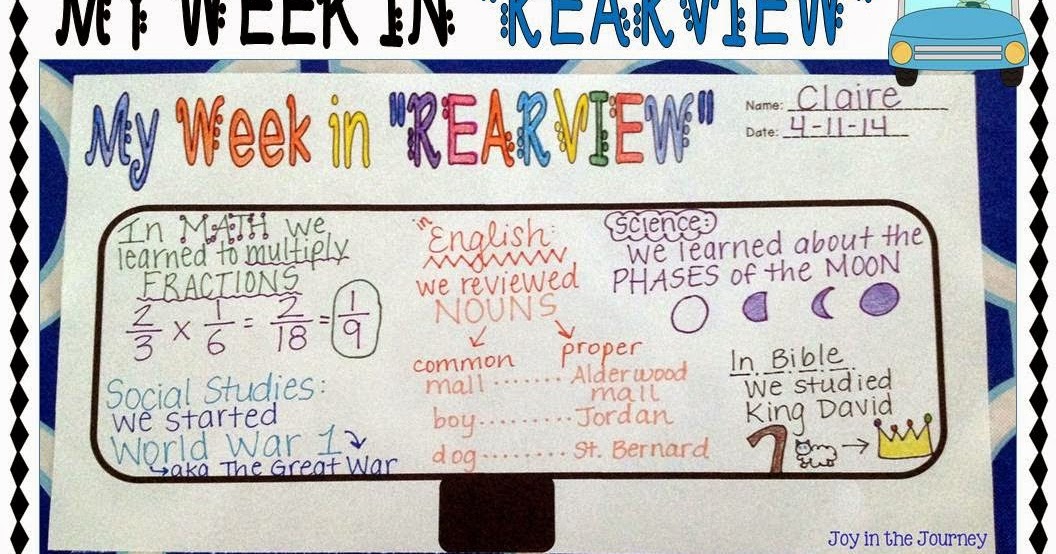 MY WEEK IN "REARVIEW"
My Week in "REARVIEW"
Name: Claire
Date: 4-11-14
In MATH we
learned to multiply
FRACTIONS
2/3 x 1/6 = 2/18 = 1/9
Social Studies:
we started
World War 1
aka The Great War
in English:
we reviewed
NOUNS
common proper
mall ....... Alderwood
mall
boy......... Jordan
dog........ St. Bernard
Science:
we learned about the
PHASES of the MOON
In Bible
we studied
King David
Joy in the Journey